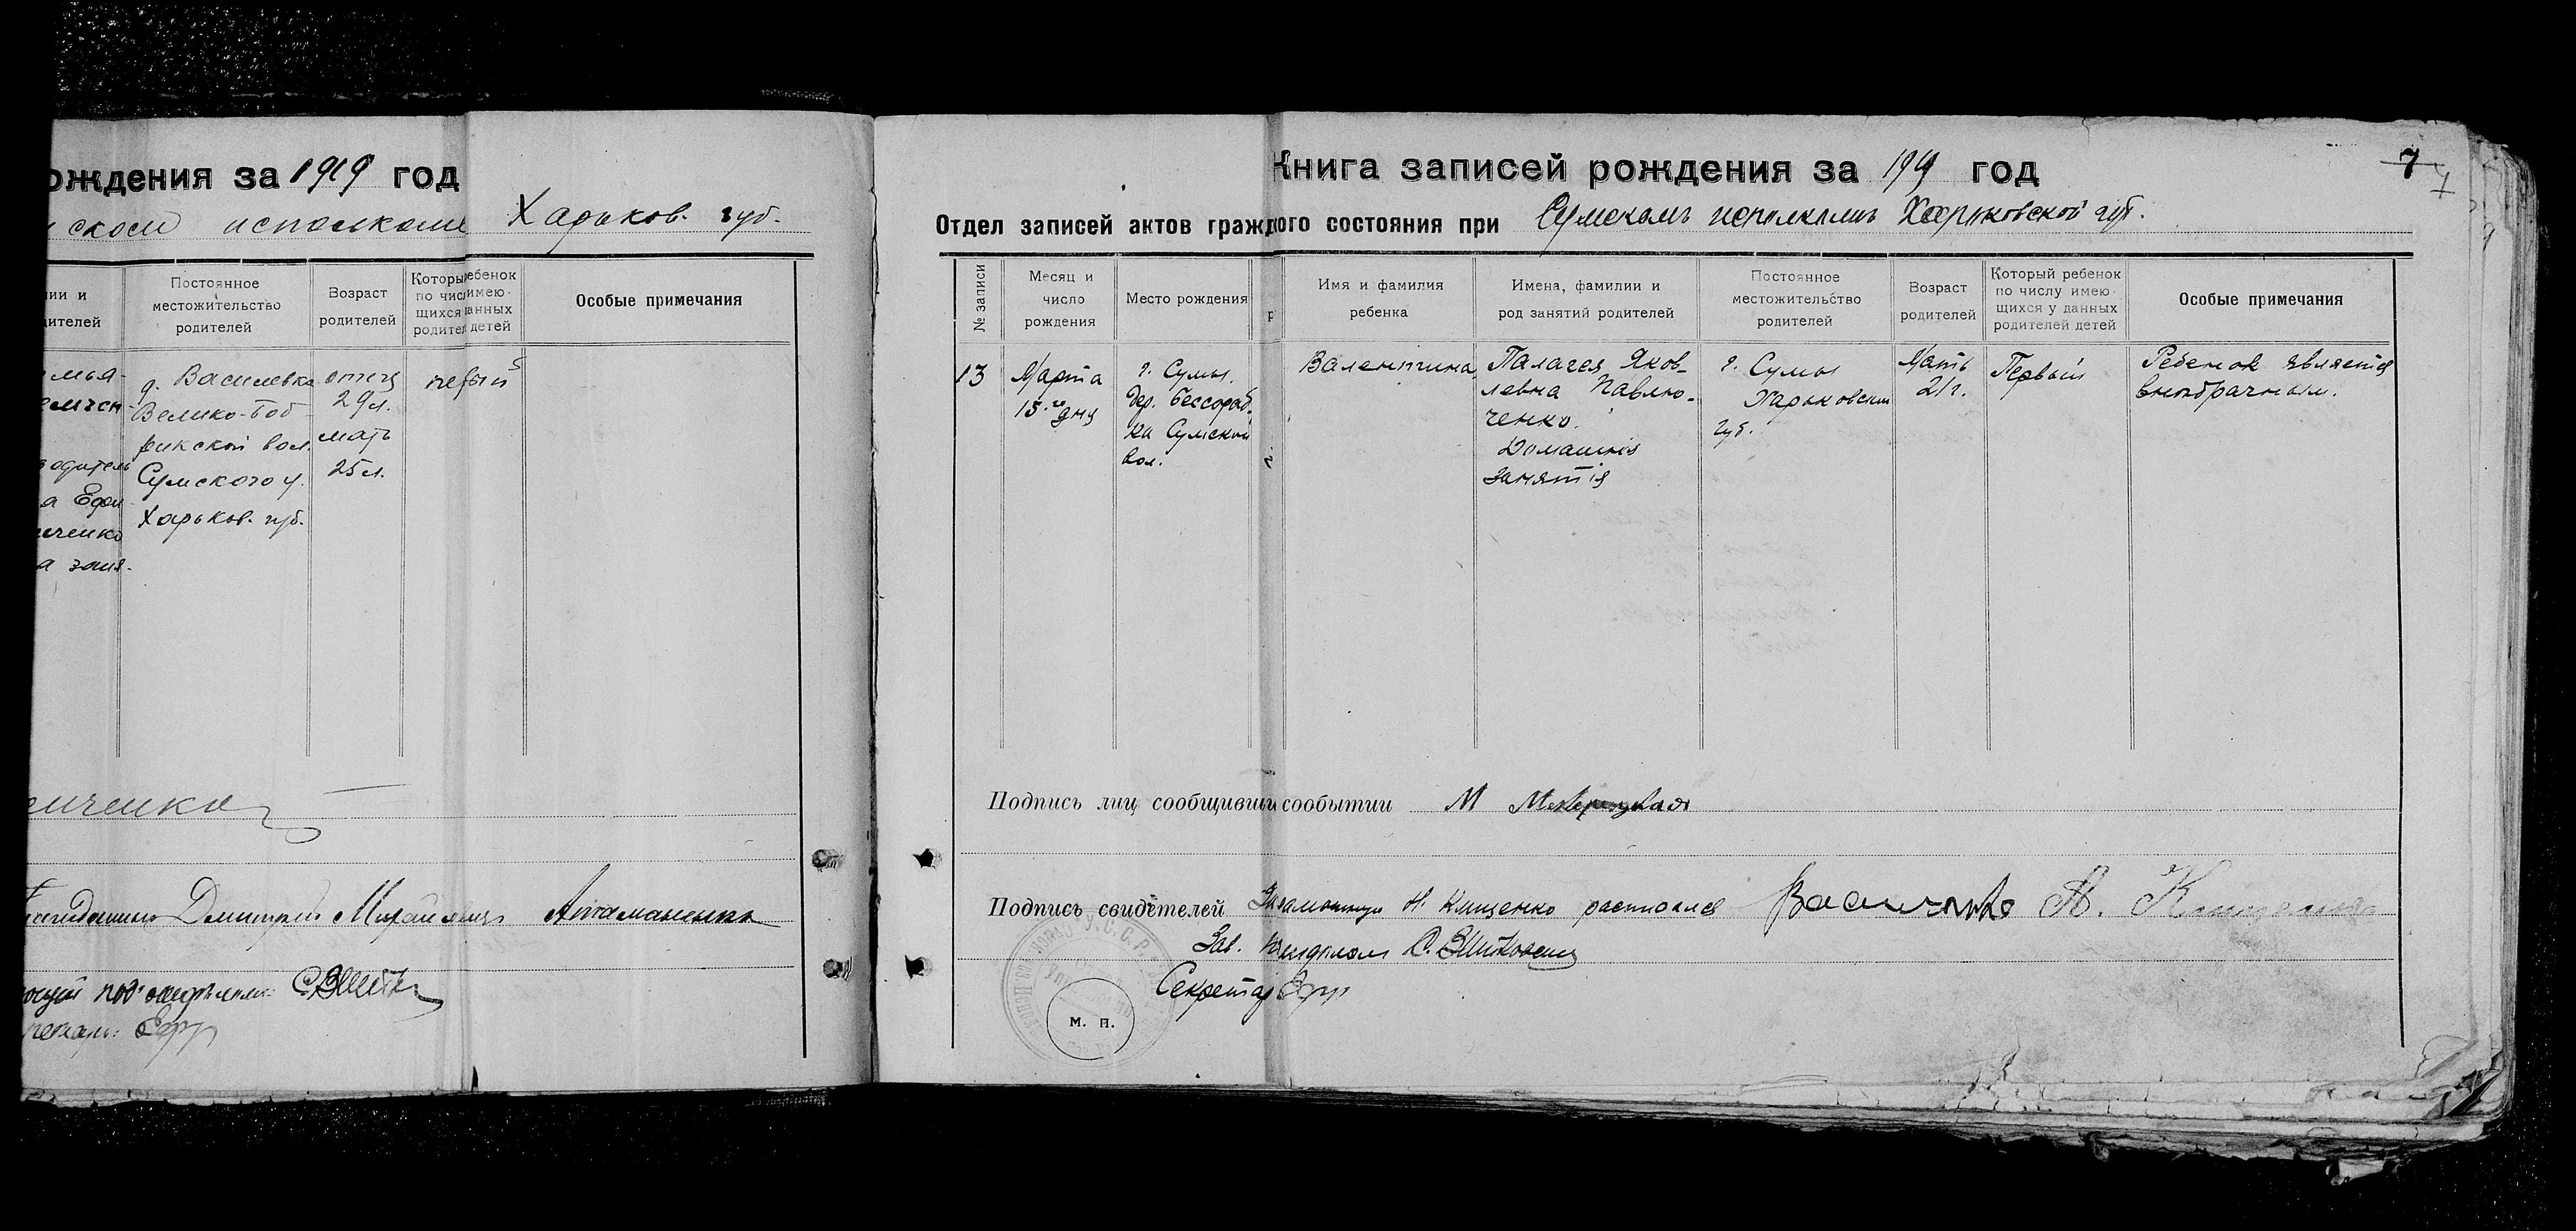 ождения за 1919 год
ском исполкоме Харьков. губ.
ии и
дителей
Постоянное
местожительство
родителей
Возраст
родителей
Которы ребенок
по числ имею-
щихся данных
родител детей
Особые примечания
д. Василевка
Велико-Боб-
рикской вол.
Сумского у.
Харьков. губ.
отец
29 л.
мать
25 л.
первый
водитель
а Ефи
ченко
а заня-
Дмитрий Атаманенко
Книга записей рождения за 1919 год
7
7
Отдел записей актов гражд ого состояния при Сумском исполкоме Харьковской губ.
№ записи
Месяц и
число
рождения
Место рождения
Имя и фамилия
ребенка
Имена, фамилии и
род занятий родителей
Постоянное
местожительство
родителей
Возраст
родителей
Который ребенок
по числу имею-
щихся у данных
родителей детей
Особые примечания
13
Марта
15.го дня
г. Сумы.
дер. Бессораб-
ка Сумской
вол.
Валентина
Палагея Яков-
левна Павлю-
ченко.
Домашнія
занятія
г. Сумы
Харьковской
губ.
Мать
21 г.
Первый
Ребенок является
внебрачным.
Подпись лиц сообщивши сообытии М
Подпись свидѣтелей Н. Кищенко расписался
Зав.
Секретар
м. п.